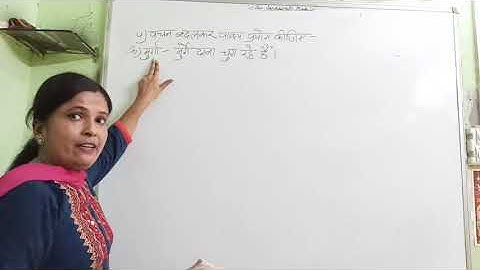 ५) वचन बदलकर वाक्य प्रयोग कीजिए -
मुर्गा - मुर्गे दाना चुग रहे हैं।